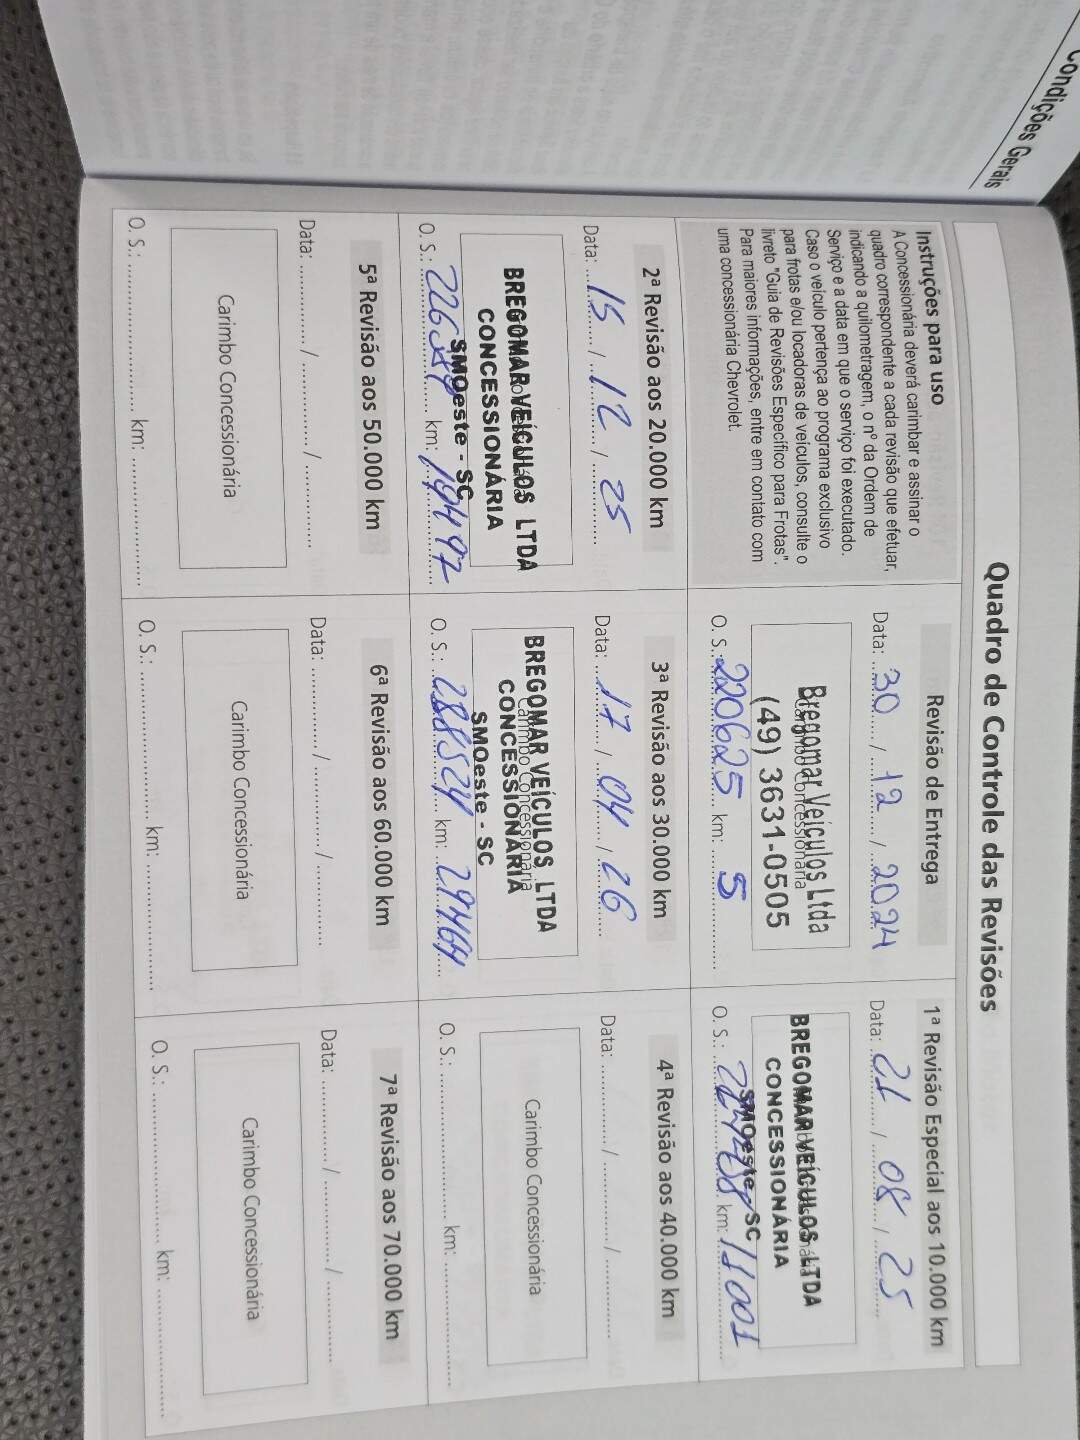 Condições Gerais
Quadro de Controle das Revisões
Instruções para uso
A Concessionária deverá carimbar e assinar o
quadro correspondente a cada revisão que efetuar,
indicando a quilometragem, o nº da Ordem de
Serviço e a data em que o serviço foi executado.
Caso o veículo pertença ao programa exclusivo
para frotas e/ou locadoras de veículos, consulte o
livreto "Guia de Revisões Específico para Frotas".
Para maiores informações, entre em contato com
uma concessionária Chevrolet.
Revisão de Entrega
Data: 30 / 12 / 2024
Carimbo Concessionária
Bregomar Veículos Ltda
(49) 3631-0505
O. S.: 220625 km: 5
1ª Revisão Especial aos 10.000 km
Data: 21 / 08 / 25
BREGOMAR VEÍCULOS LTDA
CONCESSIONÁRIA
SMOeste - SC
O. S.: km: 11001
2ª Revisão aos 20.000 km
Data: 15 / 12 / 25
BREGOMAR VEÍCULOS LTDA
CONCESSIONÁRIA
SMOeste - SC
O. S.: km: 19497
3ª Revisão aos 30.000 km
Data: 17 / 04 / 26
Carimbo Concessionária
BREGOMAR VEÍCULOS LTDA
CONCESSIONÁRIA
SMOeste - SC
O. S.: km: 29464
4ª Revisão aos 40.000 km
Data: / /
Carimbo Concessionária
O. S.: km:
5ª Revisão aos 50.000 km
Data: / /
Carimbo Concessionária
O. S.: km:
6ª Revisão aos 60.000 km
Data: / /
Carimbo Concessionária
O. S.: km:
7ª Revisão aos 70.000 km
Data: / /
Carimbo Concessionária
O. S.: km: